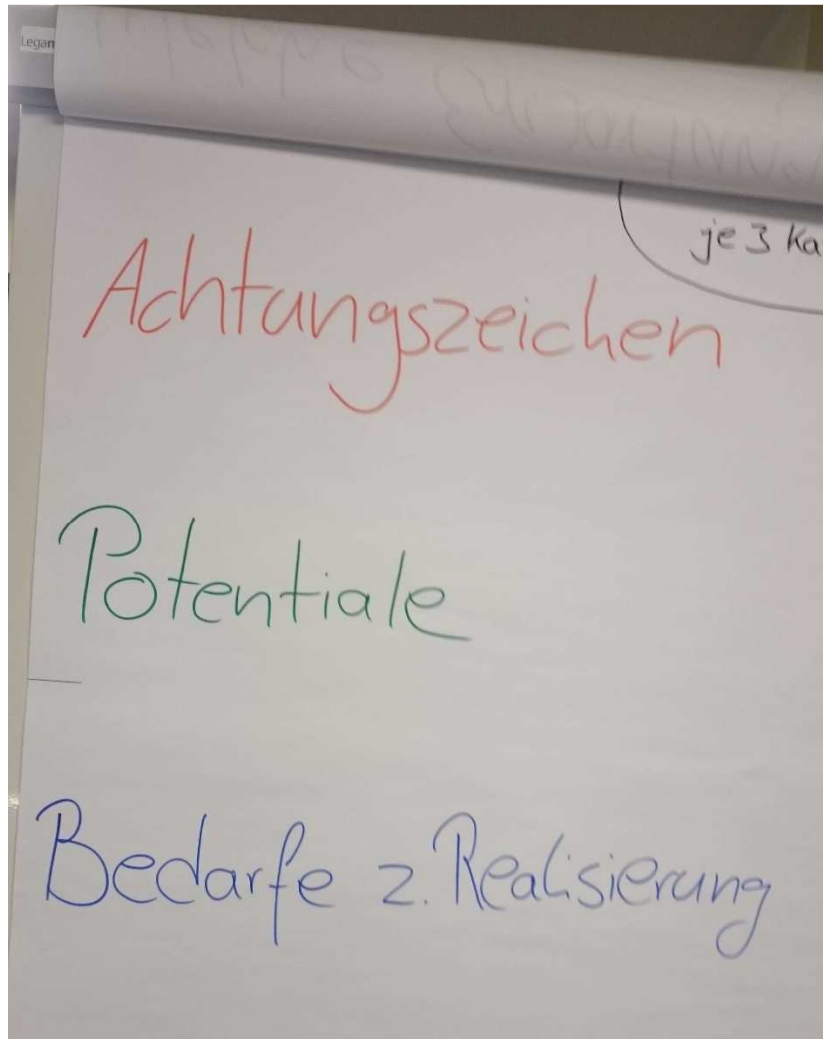 Legam
je 3 Ka
Achtungszeichen
Potentiale
Bedarfe z. Realisierung